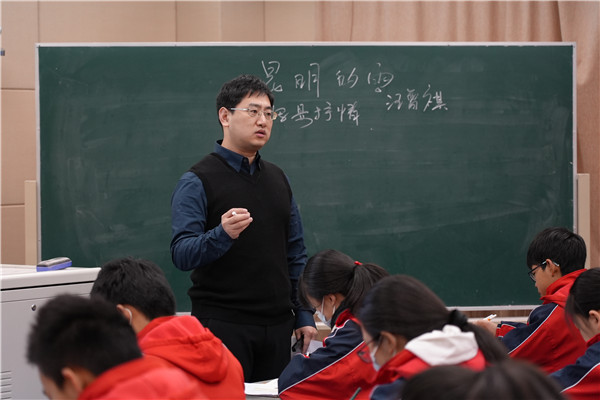 昆明的雨
汪曾祺
写景抒情